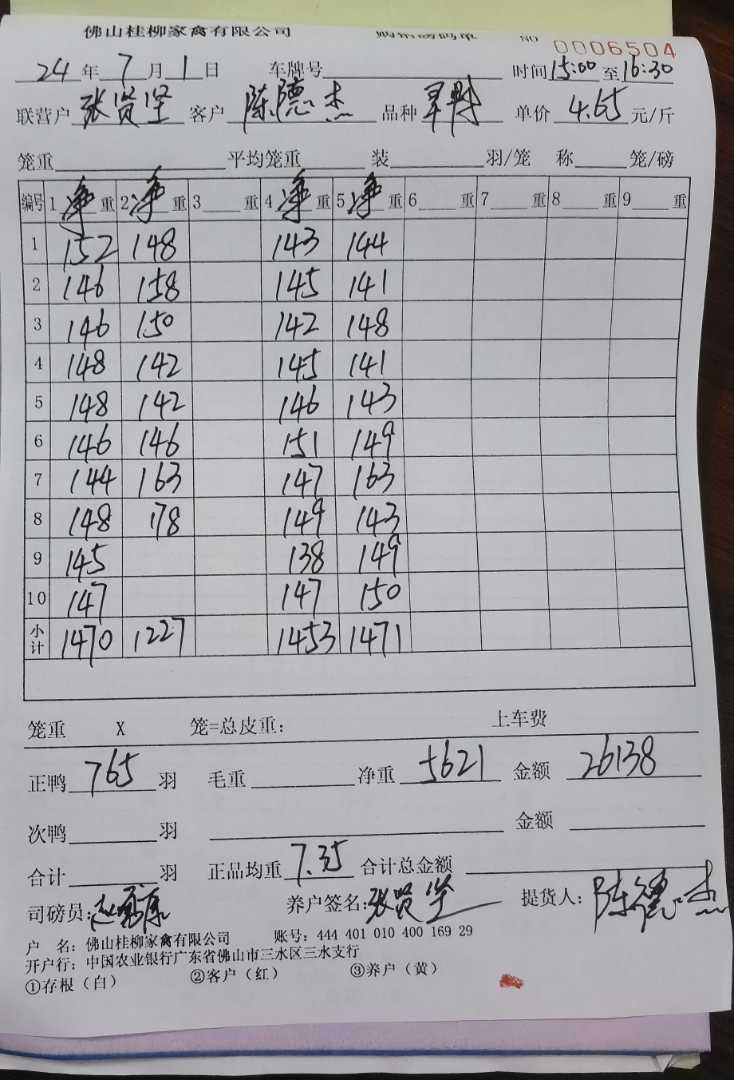 佛山桂柳家禽有限公司 购销磅码单 NO 0006504
24 年 7 月 1 日 车牌号 时间 15:00 至 16:30
联营户 张贤坚 客户 陈德杰 品种 单价 4.65 元/斤
笼重 平均笼重 装 羽/笼 称 笼/磅
编号 1 净 重 2 净 重 3 重 4 净 重 5 净 重 6 重 7 重 8 重 9 重
1 152 148 143 144
2 146 158 145 141
3 146 150 142 148
4 148 142 145 141
5 148 142 146 143
6 146 146 151 149
7 144 163 147 163
8 148 178 149 143
9 145 138 149
10 147 147 150
小计 1470 1227 1453 1471
笼重 X 笼=总皮重: 上车费
正鸭 765 羽 毛重 净重 5621 金额 26138
次鸭 羽 金额
合计 羽 正品均重 7.35 合计总金额
司磅员: 养户签名: 张贤坚 提货人: 陈德杰
户 名: 佛山桂柳家禽有限公司 账号: 444 401 010 400 169 29
开户行: 中国农业银行广东省佛山市三水区三水支行
①存根（白） ②客户（红） ③养户（黄）